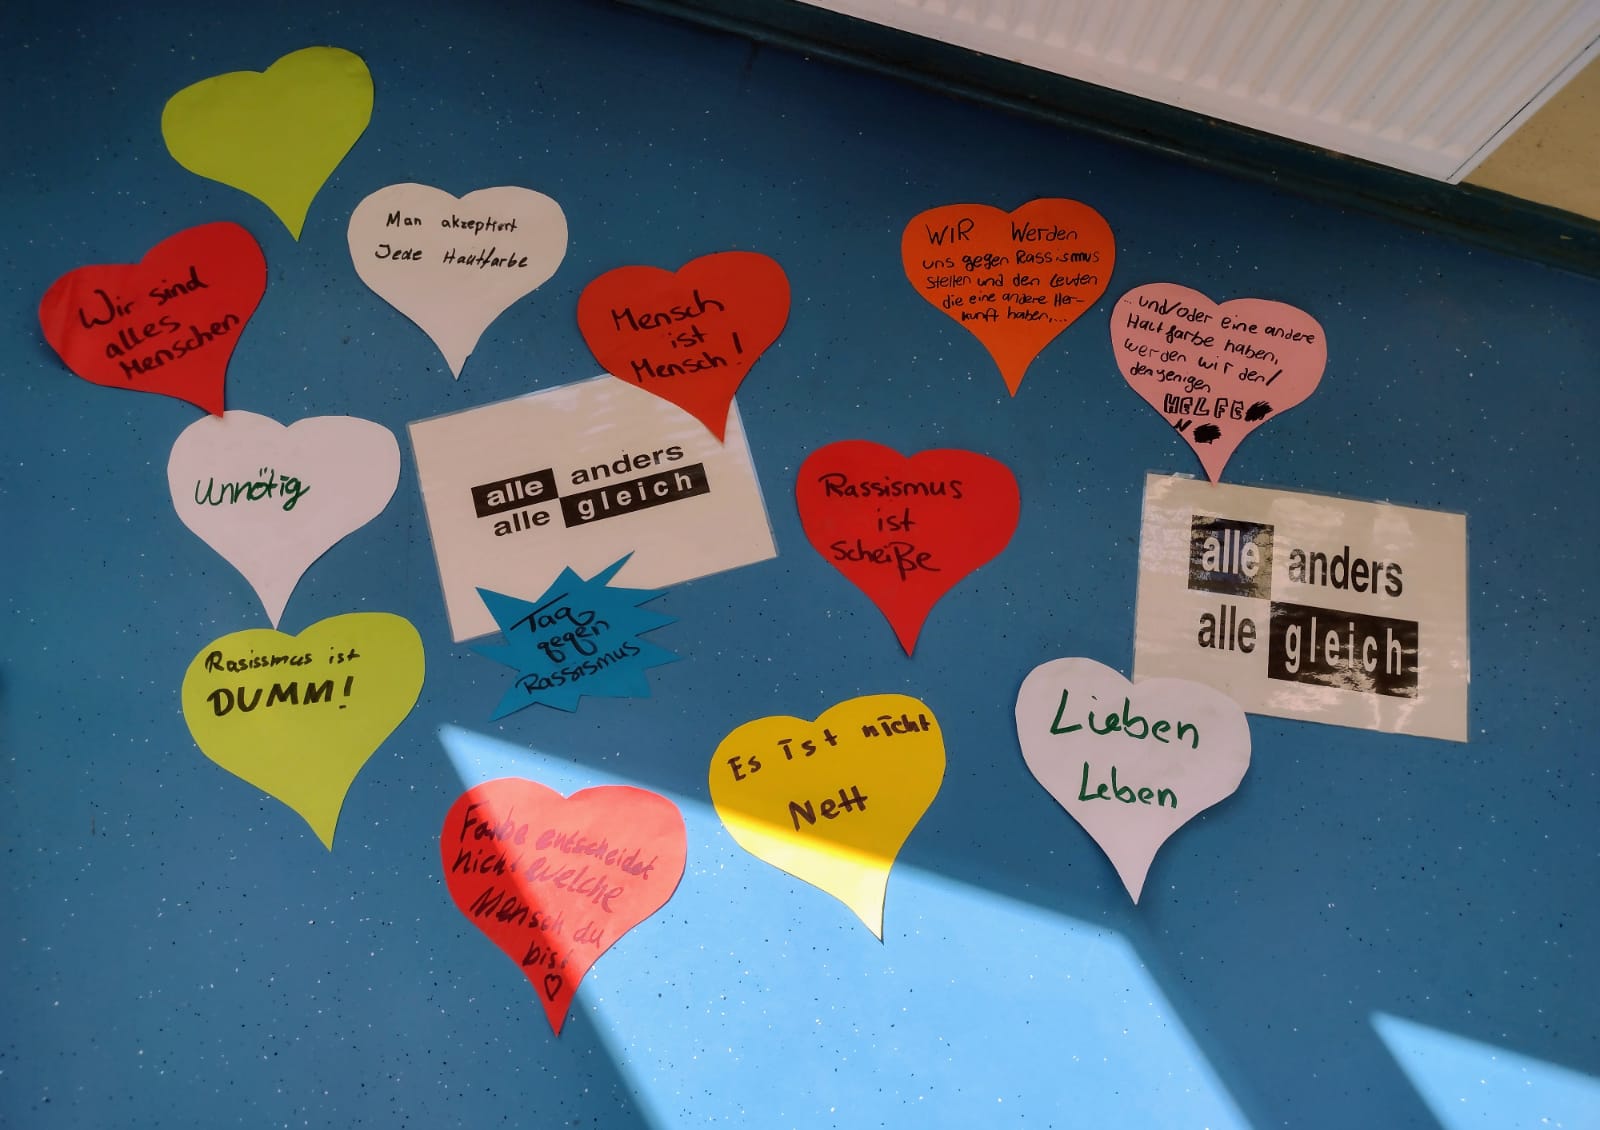 Man akzeptiert
Jede Hautfarbe
Wir sind
alles
Menschen
Mensch
ist
Mensch!
WIR Werden
uns gegen Rassismus
stellen und den Leuten
die eine andere Her-
kunft haben,...
... und/oder eine andere
Hautfarbe haben,
werden wir den/
denjenigen
HELFE
N
unnötig
alle anders
alle gleich
Rassismus
ist
Scheiße
alle anders
alle gleich
Tag
gegen
Rassismus
Rasissmus ist
DUMM!
Lieben
Leben
Es ist nicht
Nett
Farbe entscheidet
nicht welche
Mensch du
bis!